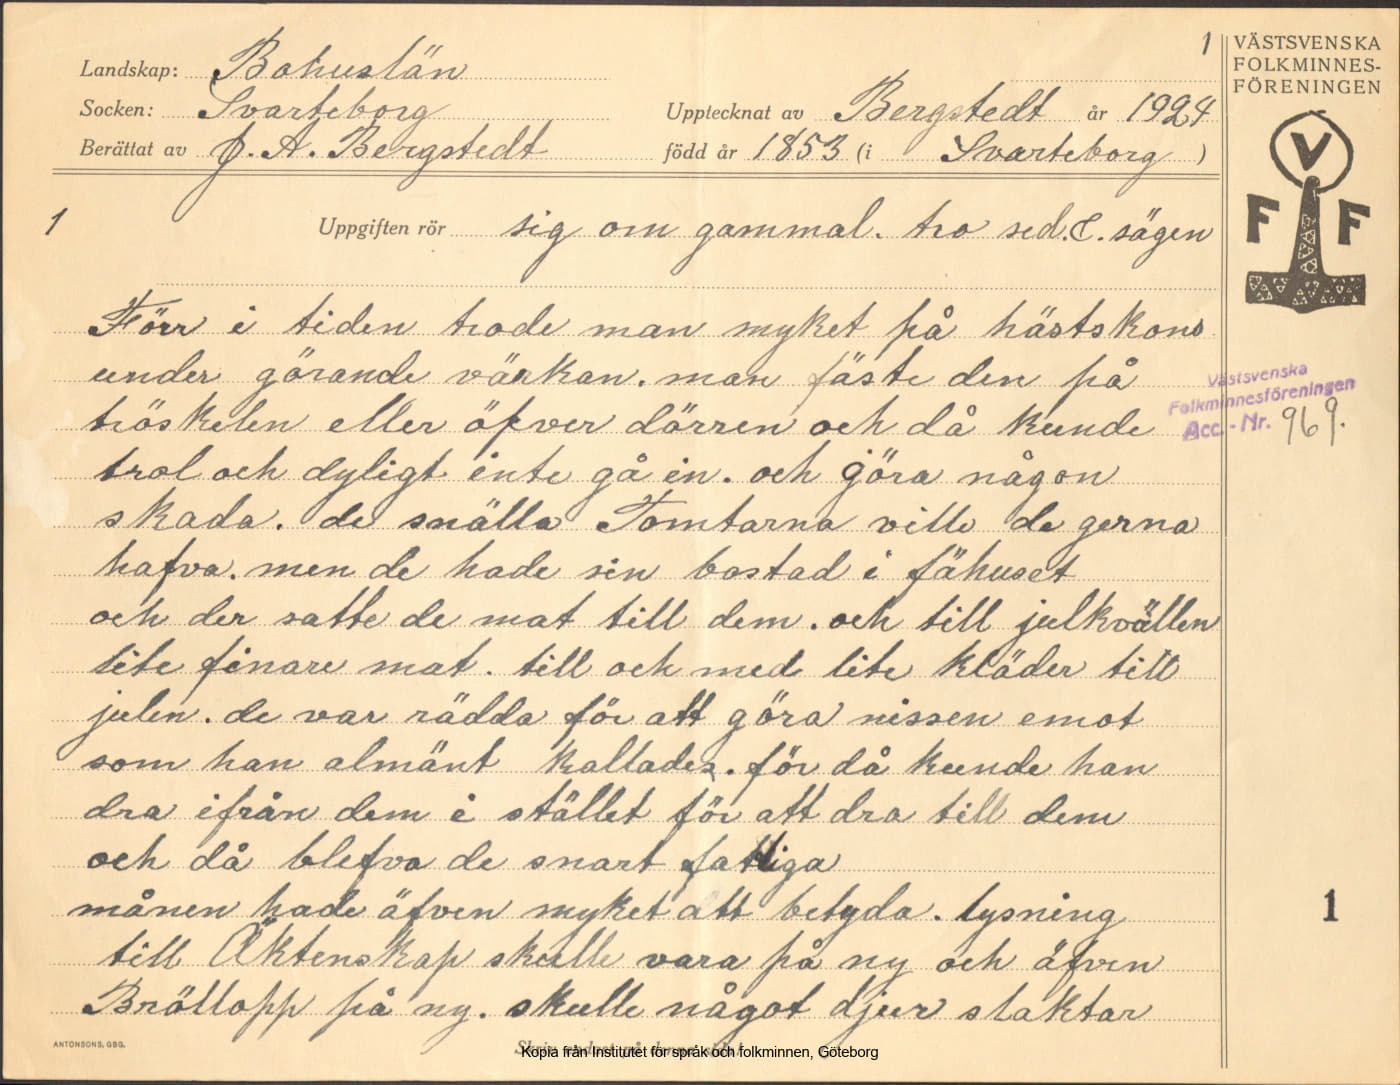 1
Landskap: Bohuslän
Socken: Svarteborg
Upptecknat av Bergstedt år 1924
Berättat av J. A. Bergstedt
född år 1853 (i Svarteborg )
VÄSTSVENSKA
FOLKMINNES-
FÖRENINGEN
V
F F
1
Uppgiften rör sig om gammal. tro sed. &. sägen
Förr i tiden trode man myket på hästskons
under görande värkan. man fäste den på
tröskelen eller öfver dörren och då kunde
trol och dyligt inte gå in. och göra någon
skada. de snälla Tomtarna ville de gerna
hafva. men de hade sin bostad i fähuset
och der satte de mat till dem. och till julkvällen
lite finare mat. till och med lite kläder till
julen. de var rädda för att göra nissen emot
som han almänt kallades. för då kunde han
dra ifrån dem i stället för att dra till dem
och då blefva de snart fattiga
månen hade äfven myket att betyda. lysning
till Äktenskap skulle vara på ny och äfven
Bröllopp på ny. skulle något djur slaktar
Västsvenska
Folkminnesföreningen
Acc.-Nr. 969.
1
ANTONSONS, GBG.
Kopia från Institutet för språk och folkminnen, Göteborg